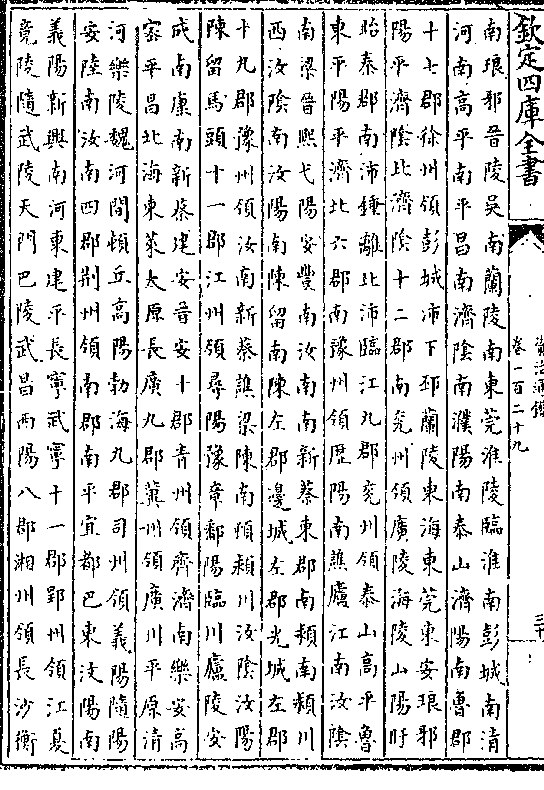 欽定四庫全書
資治通鑑
卷一百二十九
三十
南琅邪晉陵吳南蘭陵南東莞淮陵臨淮南彭城南清
河南高平南平昌南濟陰南濮陽南泰山濟陽南魯郡
十七郡徐州領彭城沛下邳蘭陵東海東莞東安琅邪
陽平濟陰北濟陰十二郡南兖州領廣陵海陵山陽盱
眙秦郡南沛鍾離北沛臨江九郡兖州領泰山高平魯
東平陽平濟北六郡南豫州領歷陽南譙廬江南汝陰
南梁晉熙弋陽安豐南汝南南新蔡東郡南頓南潁川
西汝陰南汝陽南陳留南陳左郡邊城左郡光城左郡
十九郡豫州領汝南新蔡譙梁陳南頓潁川汝陰汝陽
陳留馬頭十一郡江州領尋陽豫章鄱陽臨川廬陵安
成南康南新蔡建安晉安十郡青州領齊濟南樂安高
密平昌北海東萊太原長廣九郡冀州領廣川平原清
河樂陵魏河間頓丘高陽勃海九郡司州領義陽隨陽
安陸南汝南四郡荆州領南郡南平宜都巴東汶陽南
義陽新興南河東建平長寧武寧十一郡郢州領江夏
竟陵隨武陵天門巴陵武昌西陽八郡湘州領長沙衡